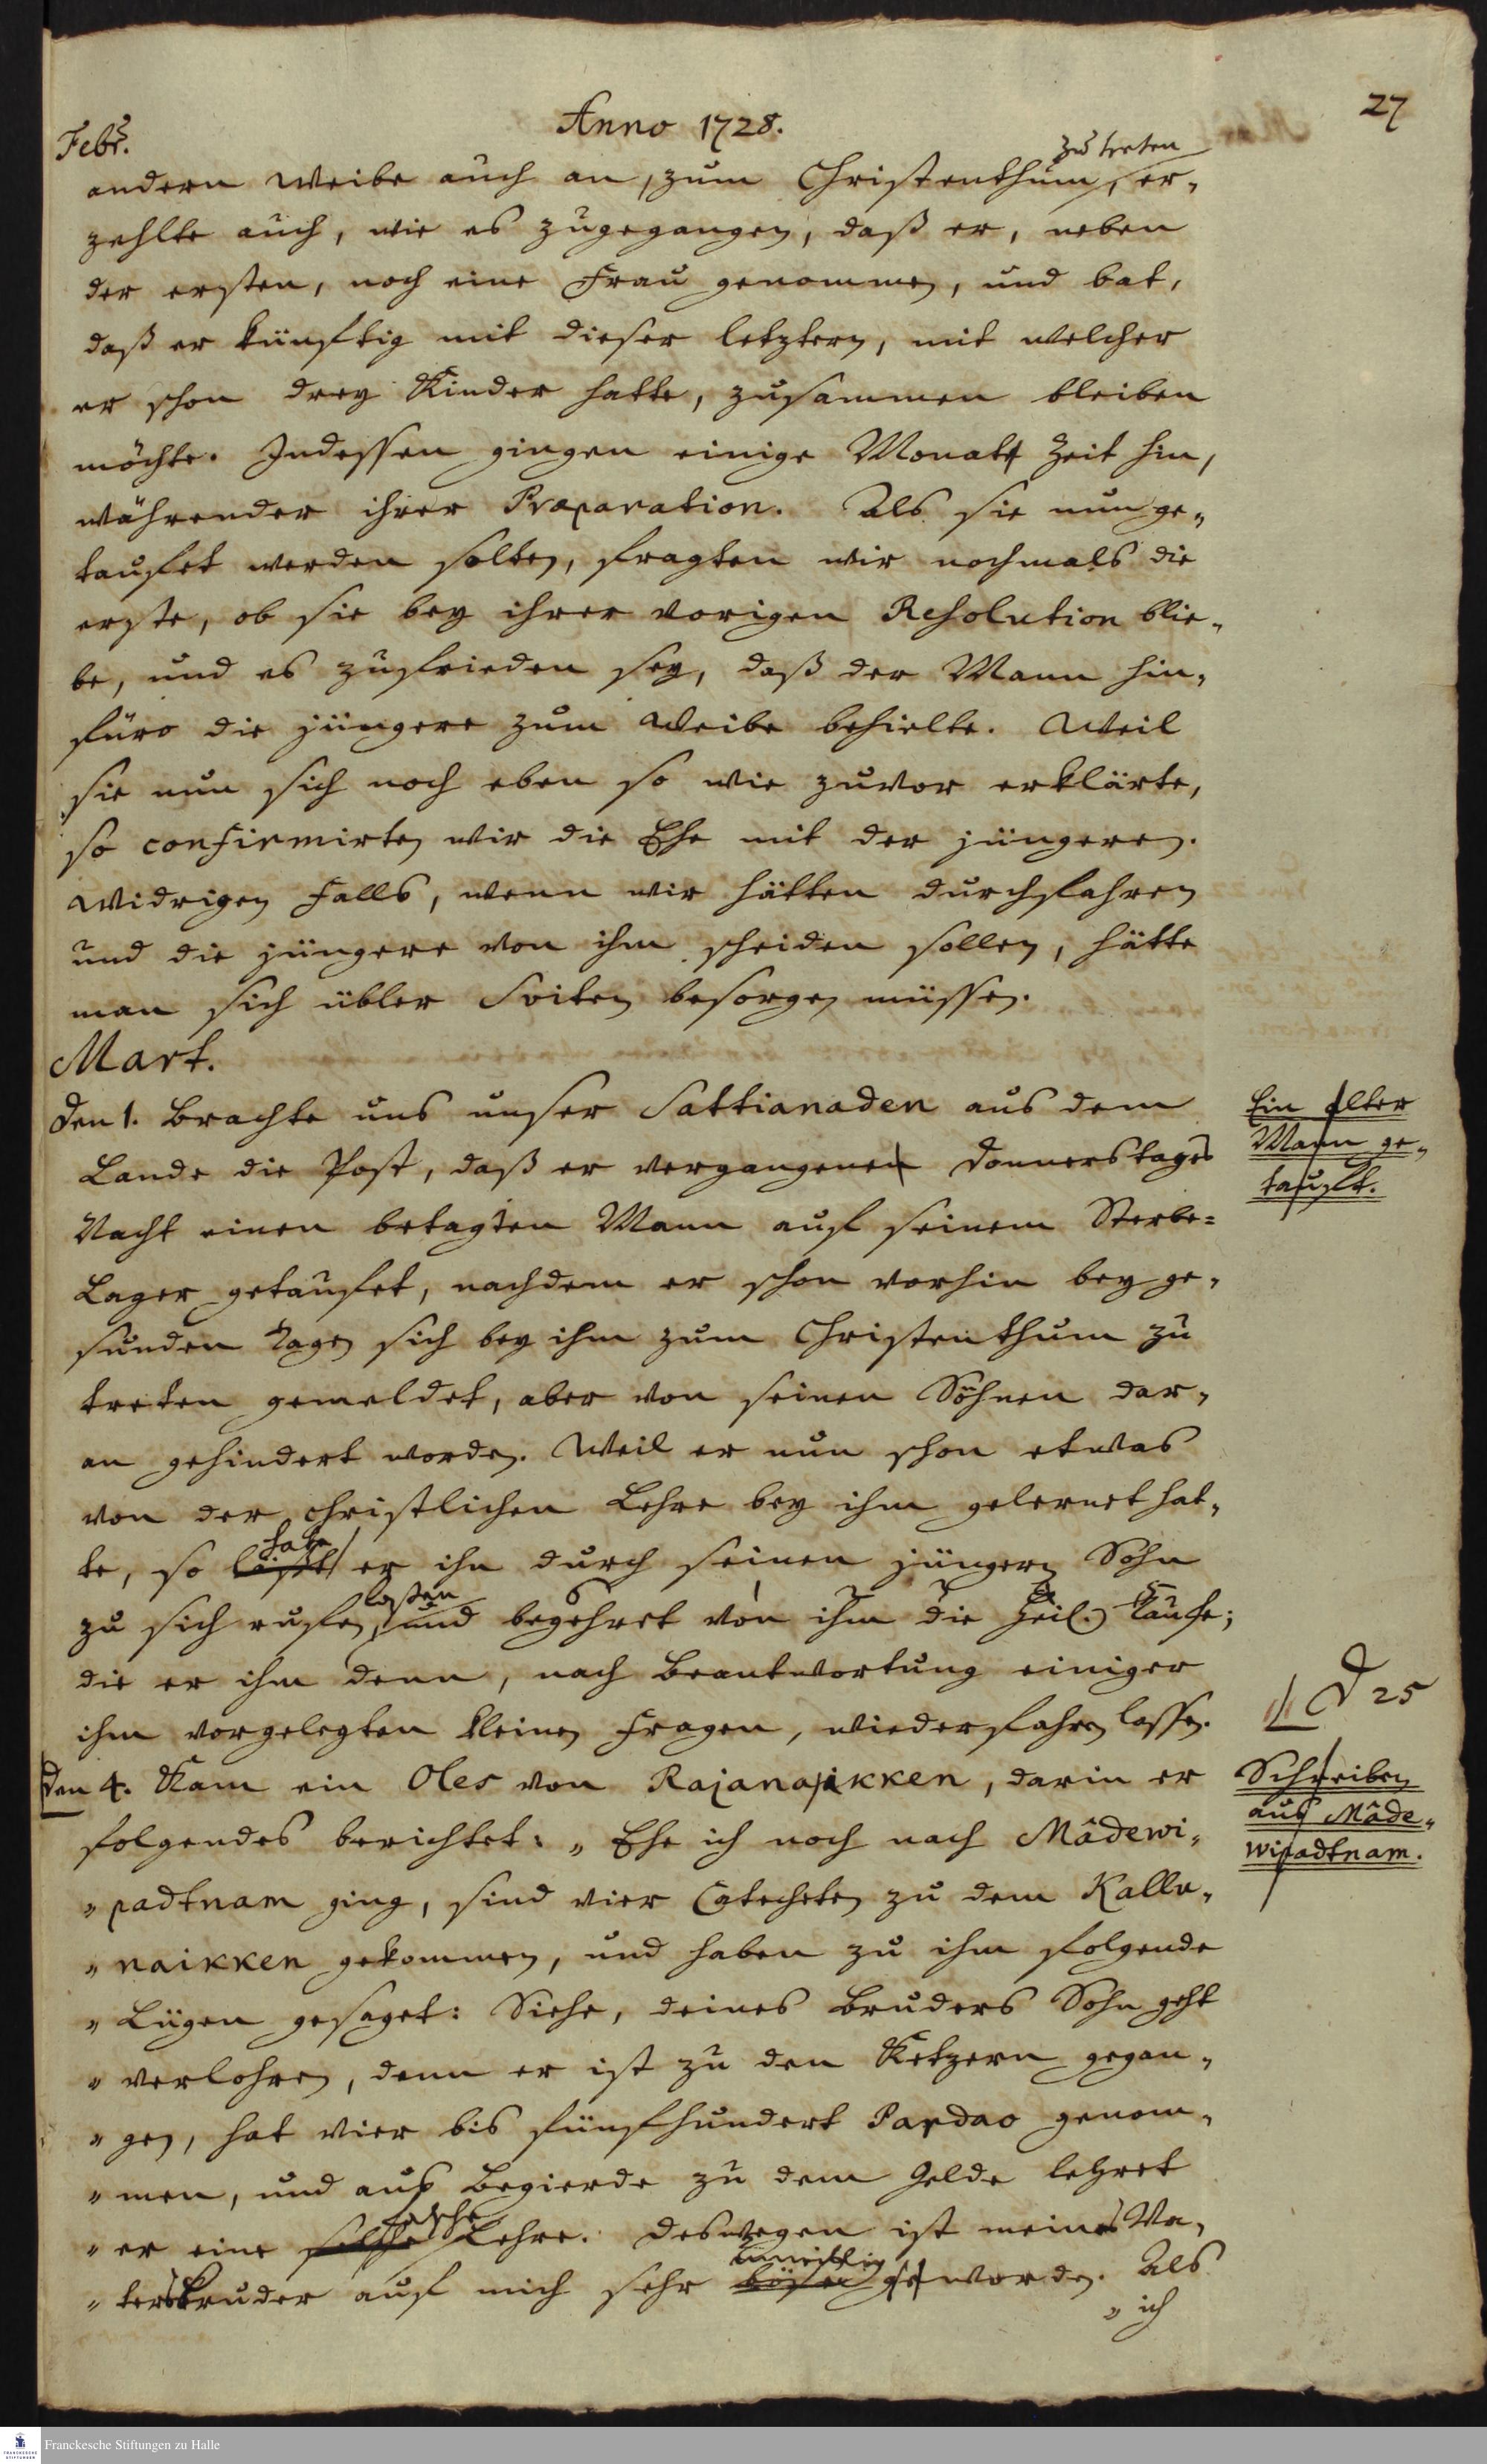 27
Anno 1728.
Febr.
zu treten
andern Weibe auch an, zum Christenthum, er-
zehlte auch, wie es zugegangen, daß er, neben
der ersten, noch eine Frau genommen, und bat,
daß er künftig mit dieser letztern, mit welcher
er schon drey Kinder hatte, zusammen bleiben
möchte. Indessen gingen einige Monate Zeit hin,
währender ihrer Præparation. Als sie nun ge-
taufet werden solten, fragten wir nochmals die
erste, ob sie bey ihrer vorigen Resolution blie-
be, und es zufrieden sey, daß der Mann hin-
füro die jüngere zum Weibe behielte. Weil
sie nun sich noch eben so wie zuvor erklärte,
so confirmirten wir die Ehe mit der jüngeren.
Widrigen Falls, wenn wir hätten durchfahren
und die jüngere von ihm scheiden sollen, hätte
man sich übler Sviten besorgen müssen.
Mart.
Den 1. Brachte uns unser Sattianaden aus dem
Lande die Post, daß er vergangenen Donnerstages
Nacht einen betagten Mann auf seinem Sterbe=
Lager getaufet, nachdem er schon vorhin bey ge-
sunden Tagen sich bey ihm zum Christenthum zu
treten gemeldet, aber von seinen Söhnen dar-
an gehindert worden. Weil er nun schon etwas
von der christlichen Lehre bey ihm gelernet hat-
te, so läßt habe er ihn durch seinen jüngern Sohn
zu sich rufen, lassen und begehret von ihm die heil. Taufe;
die er ihm denn, nach Beantwortung einiger
ihm vorgelegten kleinen Fragen, wiederfahren lassen.
Den 4. Kam ein Oles von Rajanaikken, darin er
folgendes berichtet: „Ehe ich noch nach Mâdewi-
„padtnam ging, sind vier Catecheten zu dem Kallu-
„naikken gekommen, und haben zu ihm folgende
„Lügen gesaget: Siehe, deines Bruders Sohn geht
„verlohren, denn er ist zu den Ketzern gegan-
„gen, hat vier bis fünfhundert Pardao genom-
„men, und aus Begierde zu dem Gelde lehret
„er eine solche falsche Lehre. Deswegen ist meines Va-
„tersbruder auf mich sehr böse unwillig geworden. Als
„ich
Ein alter
Mann ge-
tauft.
25
Schreiben
aus Mâde-
wipadtnam.
Franckesche Stiftungen zu Halle